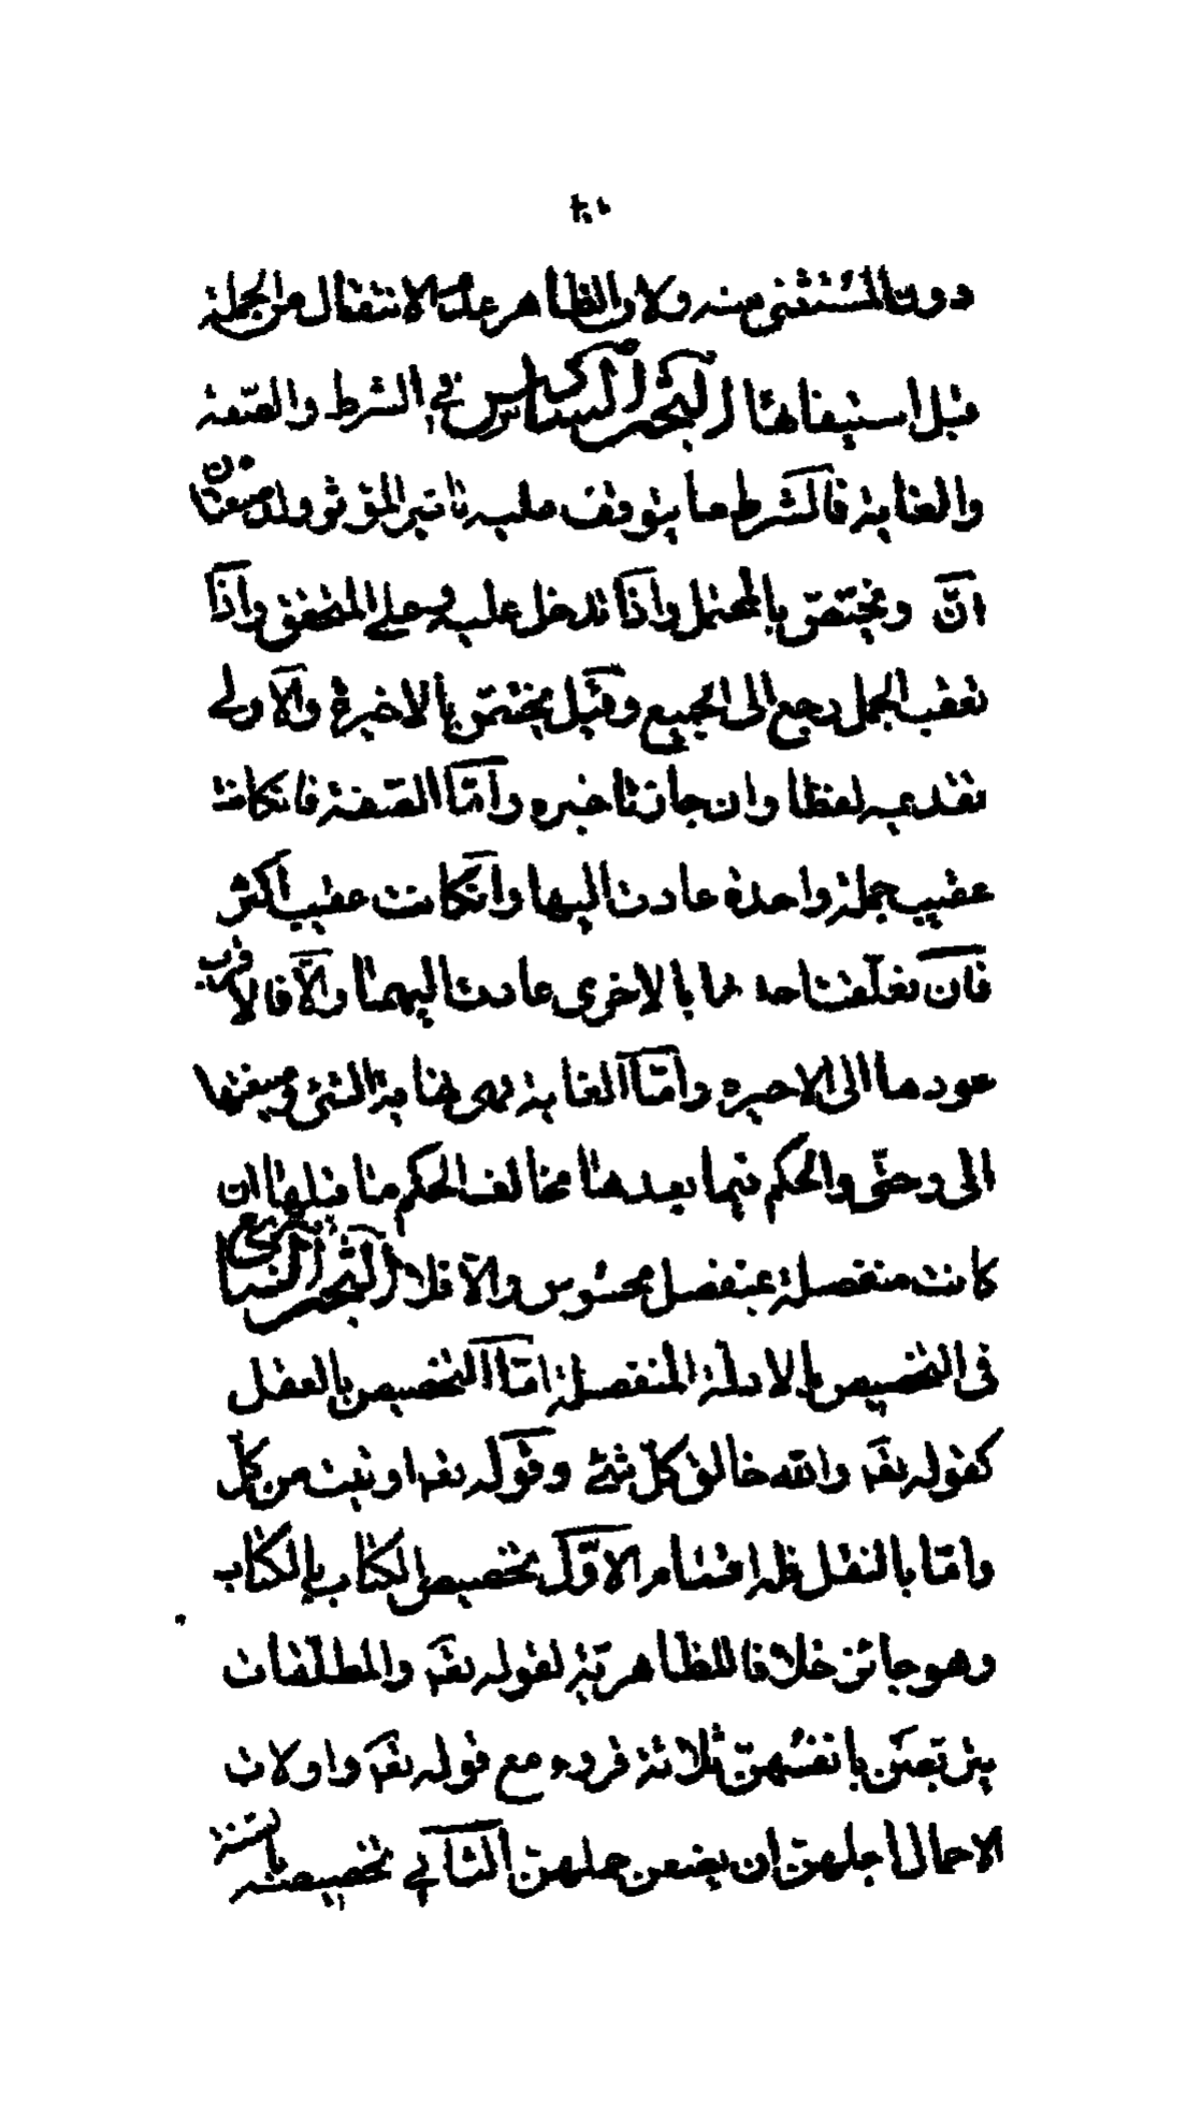 دون المستثنى منه ولان الظاهر عدم الانتقال عن الجملة
قبل استيفائها البحث السادس في الشرط والصّفة
والغاية فالشرط ما يتوقف عليه تاثير المؤثر وله صيغتان
انّ ويختصّ بالمحتمل واذا تدخل عليه وعلى المتحقق واذا
تعقب الجمل رجع الى الجميع وقيل يختص بالاخيرة والاولى
تقديمه لفظا وان جاز تاخيره وامّا الصّفة فانكانت
عقيب جملة واحدة عادت اليها وانكانت عقيب اكثر
فان تعلّقت احدهما بالاخرى عادت اليهما والّا فالاقرب
عودها الى الاخيره وامّا الغاية فهى نهاية الشئ وصيغتها
الى وحتّى والحكم فيما بعدها مخالف الحكم ما قبلها ان
كانت منفصلة بمنفصل محسوس والّا فلا البحث السّابع
فى التخصيص بالادلة المنفصلة امّا التخصيص بالعقل
كقوله تعه والله خالق كلّ شئ وقوله تعه اوتيت من كلّ
وامّا بالنقل فله اقسام الاوّل تخصيص الكتاب بالكتاب
وهو جائز خلافا للظاهريّة لقوله تعه والمطلّقات
يتربّصن بانفسهنّ ثلاثة قروء مع قوله تعه واولات
الاحمال اجلهنّ ان يضعن حملهنّ الثاني تخصيصه بالسّنة